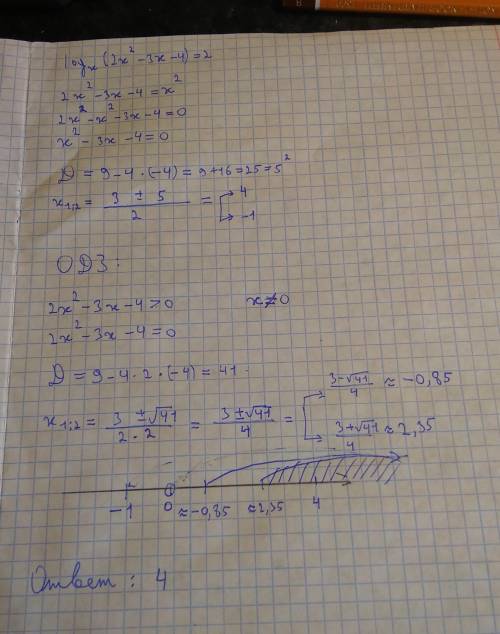 log_x (2x² - 3x - 4) = 2
2x² - 3x - 4 = x²
2x² - x² - 3x - 4 = 0
x² - 3x - 4 = 0
D = 9 - 4 · (-4) = 9 + 16 = 25 = 5²
x₁;₂ = (3 ± 5)/2 = [→ 4 → -1
ОДЗ:
2x² - 3x - 4 > 0 x ≠ 0
2x² - 3x - 4 = 0
D = 9 - 4 · 2 · (-4) = 41.
x₁;₂ = (3 ± √41)/(2 · 2) = (3 ± √41)/4 = [→ (3 - √41)/4 ≈ -0,85 → (3 + √41)/4 ≈ 2,35
-1 0 ≈ -0,85 ≈ 2,35 4
Ответ: 4